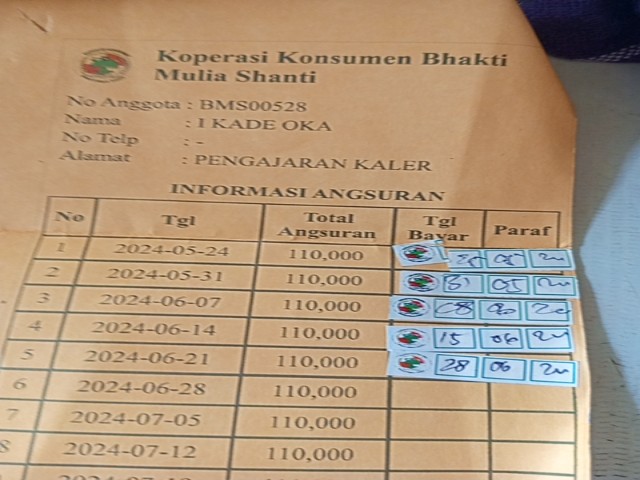 Koperasi Konsumen Bhakti
Mulia Shanti
No Anggota : BMS00528
Nama : I KADE OKA
No Telp : -
Alamat : PENGAJARAN KALER
INFORMASI ANGSURAN
No Tgl Total Angsuran Tgl Bayar Paraf
1 2024-05-24 110,000 05
2 2024-05-31 110,000 31 05
3 2024-06-07 110,000
4 2024-06-14 110,000 15 06
5 2024-06-21 110,000 28 06
6 2024-06-28 110,000
7 2024-07-05 110,000
8 2024-07-12 110,000